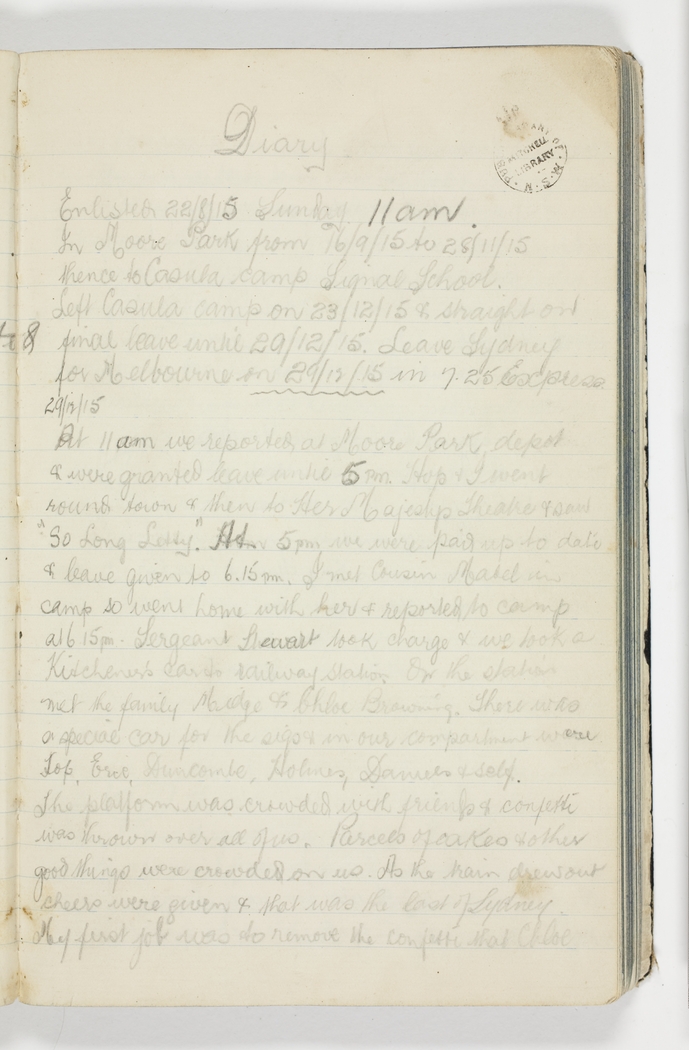 Diary
PUBLIC LIBRARY OF N.S.W.
MITCHELL LIBRARY
Enlisted 22/8/15 Sunday 11am.
In Moore Park from 16/9/15 to 28/11/15
thence to Casula camp Signal School.
Left Casula camp on 23/12/15 & straight on
final leave until 29/12/15. Leave Sydney
for Melbourne on 29/12/15 in 7.25 Express
29/12/15
At 11am we reported at Moore Park depot
& were granted leave until 5pm. & I went
round town & then to Her Majestys Theatre & saw
"So Long Letty". At 5pm we were paid up to date
& leave given to 6.15pm. I met Cousin Mabel in
camp so went home with her & reported to camp
at 6.15pm. Sergeant Stewart took charge & we took a
Kitchener's car to railway station. On the station
met the family Midge & Chloe Browning. There was
a special car for the sigs & in our compartment were
Eric, Duncombe, Holmes, Daniels & self.
The platform was crowded with friends & confetti
was thrown over all of us. Parcels of cakes & other
good things were crowded on us. As the train drew out
cheers were given & that was the last of Sydney.
My first job was to remove the confetti that Chloe